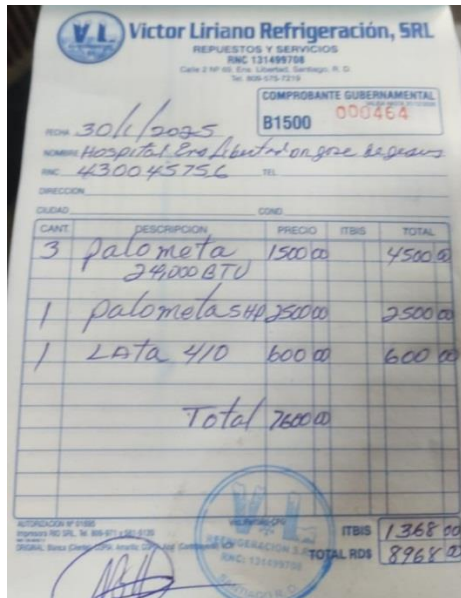 VL Victor Liriano Refrigeración, SRL
REPUESTOS Y SERVICIOS
RNC 131499708
Calle 2 Nº 69, Ens. Libertad, Santiago, R. D.
Tel. 809-575-7219
COMPROBANTE GUBERNAMENTAL
B1500 000464
FECHA 30/1/2025
NOMBRE Hospital Ens Libertad
RNC 430045756 TEL.
DIRECCION
CIUDAD COND.
CANT. DESCRIPCION PRECIO ITBIS TOTAL
3 palometa 1500 00 4500 00
24,000 BTU
1 palometa 5HP 2500 00 2500 00
1 LATA 410 600 00 600 00
Total 7600 00
VL
REFRIGERACION S.R.L
RNC: 131499708
SANTIAGO R.D.
ITBIS 1368 00
TOTAL RD$ 8968 00